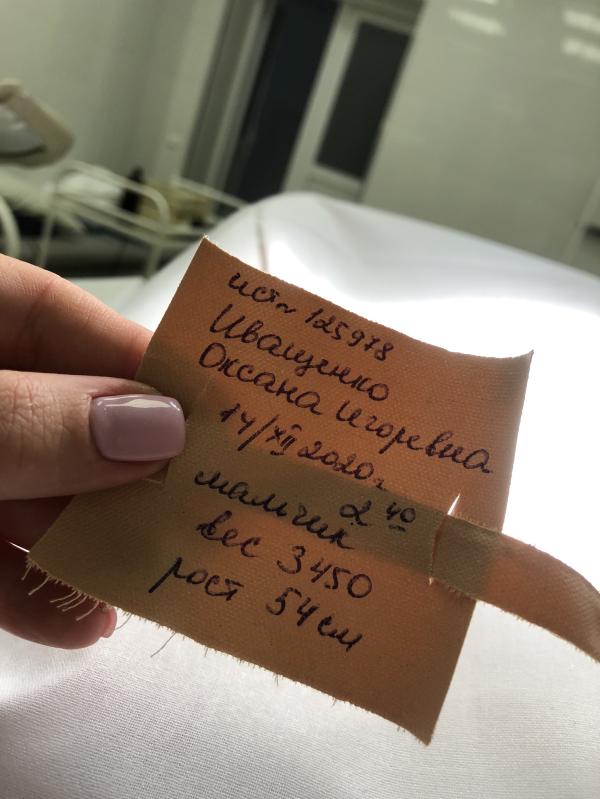 ист~ 125978
Иващенко
Оксана Игоревна
14/XII 2020г
2 40
мальчик
вес 3450
рост 54 см